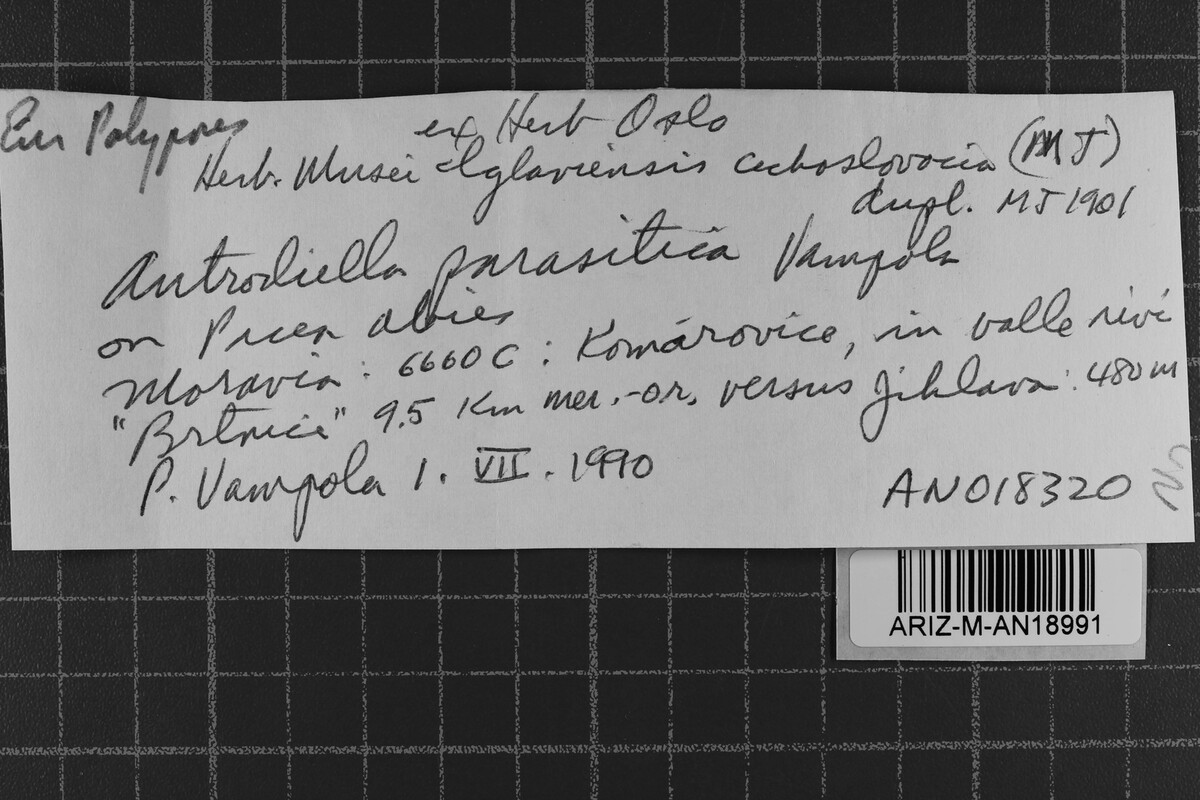 Eur Polypores
ex Herb Oslo
Herb. Musei Iglaviensis Cechoslovacia (MJ)
dupl. MJ 1901
Antrodiella parasitica Vampola
on Picea abies
Moravia: 6660C: Komárovice, in valle rivi
"Brtnice" 9.5 km mer.-or. versus Jihlava: 480m
P. Vampola 1. VII. 1990
AN018320
ARIZ-M-AN18991